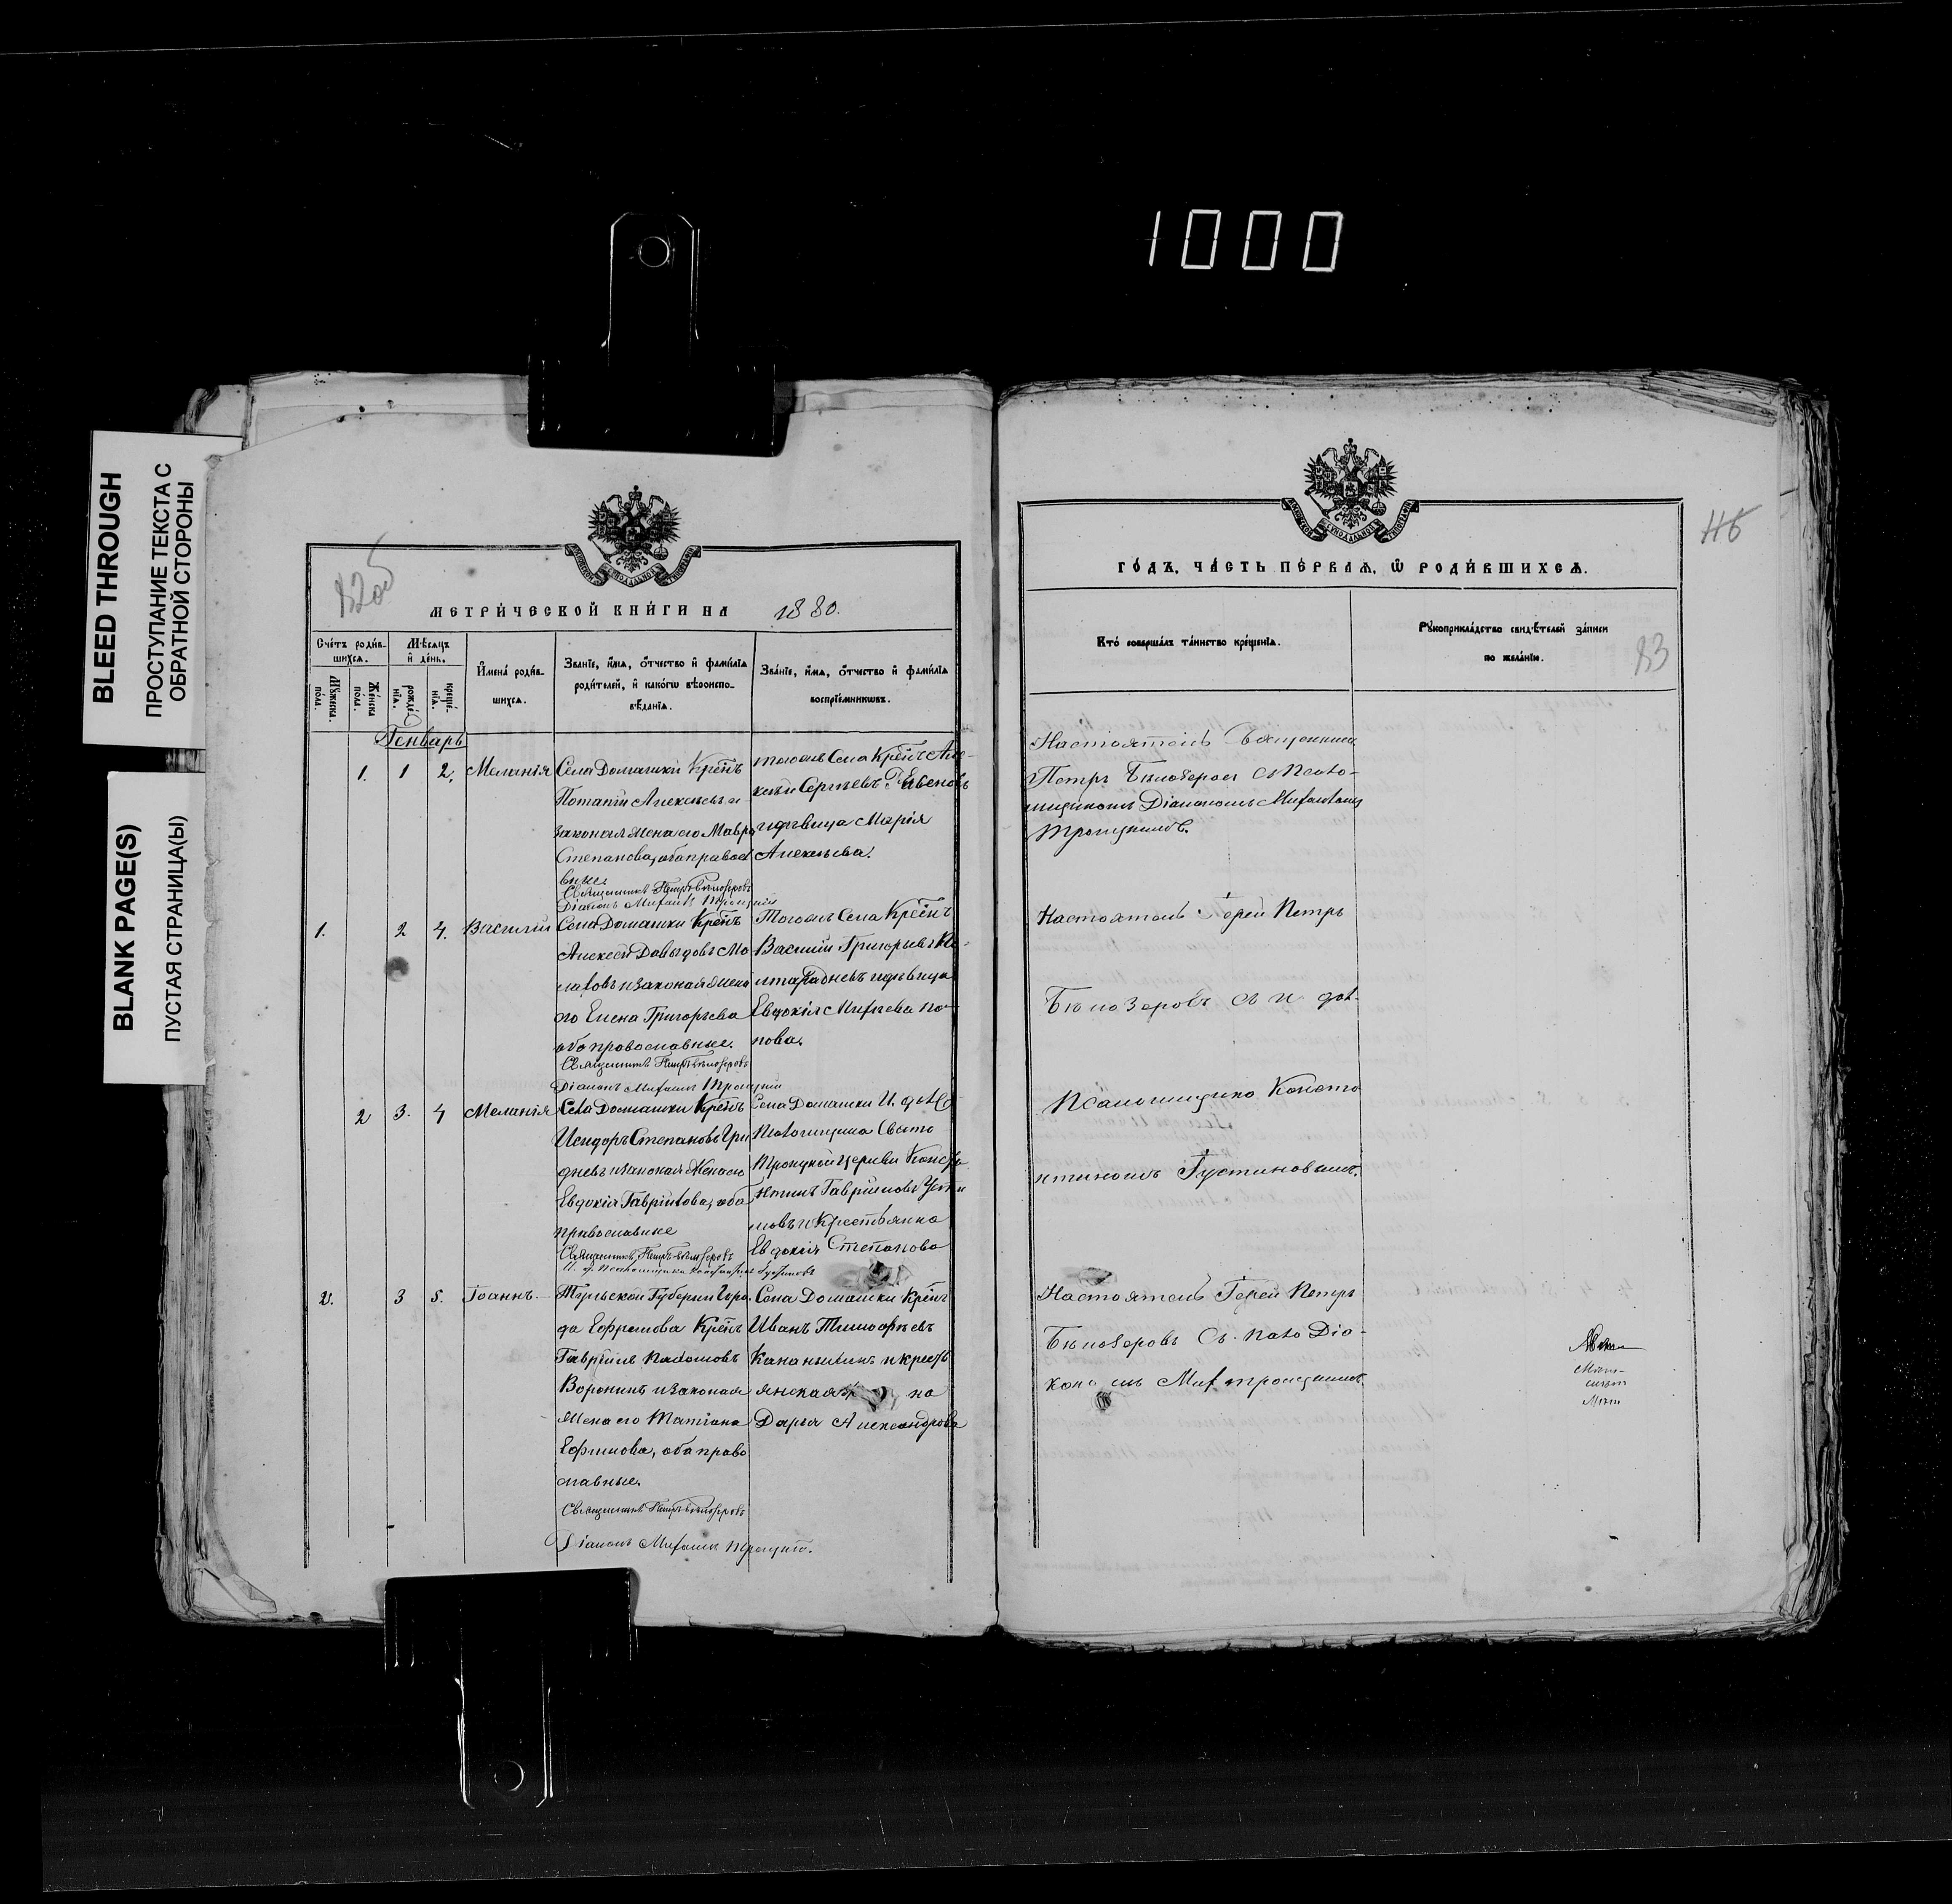 1000
BLEED THROUGH
ПРОСТУПАНИЕ ТЕКСТА С
ОБРАТНОЙ СТОРОНЫ
BLANK PAGE(S)
ПУСТАЯ СТРАНИЦА(Ы)
82об
МЕТРИ́ЧЕСКОЙ КНИ́ГИ НА 1880.
Сче́тъ роди́в-
шихсѧ.
Мѣ́сѧцъ
и҆ де́нь.
Мꙋ́жеска
по́ла.
Же́нска
по́ла.
рожде́-
нїѧ.
креще́-
нїѧ.
И҆мена̀ роди́в-
шихсѧ.
Зва́нїе, и҆́мѧ, ѻ҆́тчество и҆ фами́лїѧ
роди́телей, и҆ како́гѡ вѣроиспо-
вѣ́данїѧ.
Зва́нїе, и҆́мѧ, ѻ҆́тчество и҆ фами́лїѧ
воспрїе́мникѡвъ.
Генварь
1. 1 2. Меланія
Села Домашки Крест̃нъ
Потапій Алексѣевъ и
законая жена его Мавра
Степанова, оба правос
вные.
Священникъ Петръ Бѣлозеровъ
Діаконъ Михаилъ Троицкій
тогожъ Села Крест̃нъ Але-
ксѣй Сергѣевъ
и дѣвица Марія
Алексѣева.
1. 2 4. Василій
Села Домашки Крест̃нъ
Алексѣй Давыдовъ Мо
лаховъ и законая жена
его Елена Григорьева
оба православные.
Священникъ Петръ Бѣлозеровъ
Діаконъ Михаилъ Троицкій
Тогожъ Села Крест̃нъ
Василій Григорьевъ
и дѣвица
Евдокія по-
пова.
2 3. 4 Меланія
Села Домашки Крест̃нъ
Исидоръ Степановъ Гри
дневъ и законая жена его
Евдокія Гавріилова, оба
православные
Священникъ Петръ Бѣлозеровъ
И. д. Псаломщика Константинъ Густиновъ
Села Домашки И. д.
Псаломщика Свято
Троицкой Церкви Конста
нтинъ Гавріиловъ Усти
новъ и Крестьянка
Евдокія Степанова
2. 3 5. Іоаннъ.
Тульской Губерніи Горо.
да Ефремова Крест̃нъ
Гавріилъ Пахомовъ
Воронинъ и законая
жена его Татіана
Ефимова, оба право
славные.
Священникъ Петръ Бѣлозеровъ
Діаконъ Михаилъ Троицкій.
Села Домашки Крест̃нъ
Иванъ Тимофѣевъ
и крест
янская
Дарья Александрова
ГО́ДЪ, ЧА́СТЬ ПЕ́РВАѦ, Ѡ҆ РОДИ́ВШИХСѦ.
Кто̀ соверша́лъ та́инство креще́нїѧ.
Рꙋкоприкла́дство свидѣ́телей за́писи
по жела́нїю.
83
Настоятель Священникъ
Петръ Бѣлозеровъ съ Псало-
мщикомъ Діакономъ Михаиломъ
Троицкимъ.
Настоятель Іерей Петръ
Бѣлозеровъ съ и. дол.
Псаломщика Конста
нтиномъ Густиновымъ.
Настоятель Іерей Петръ
Бѣлозеровъ съ Псало Діа-
кономъ Мих Троицкимъ